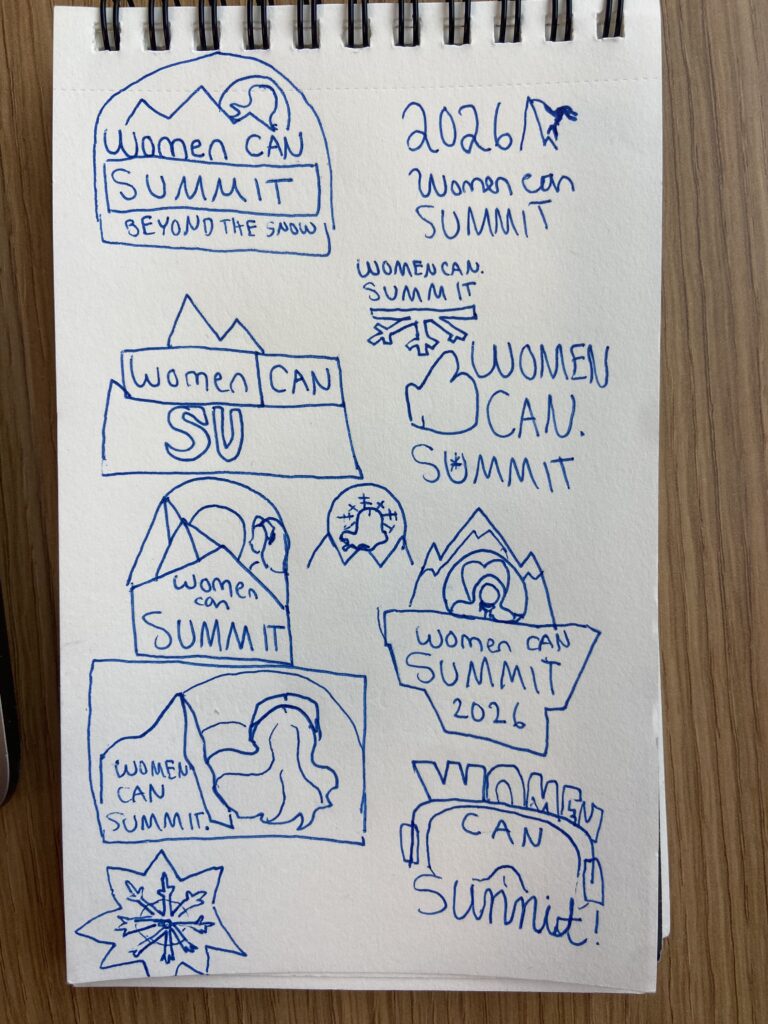 Women CAN
SUMMIT
BEYOND THE SNOW
2026
Women can
SUMMIT
WOMEN CAN.
SUMMIT
Women CAN
SU
WOMEN
CAN.
SUMMIT
Women
can
SUMMIT
Women CAN
SUMMIT
2026
WOMEN
CAN
SUMMIT.
WOMEN
CAN
Summit!